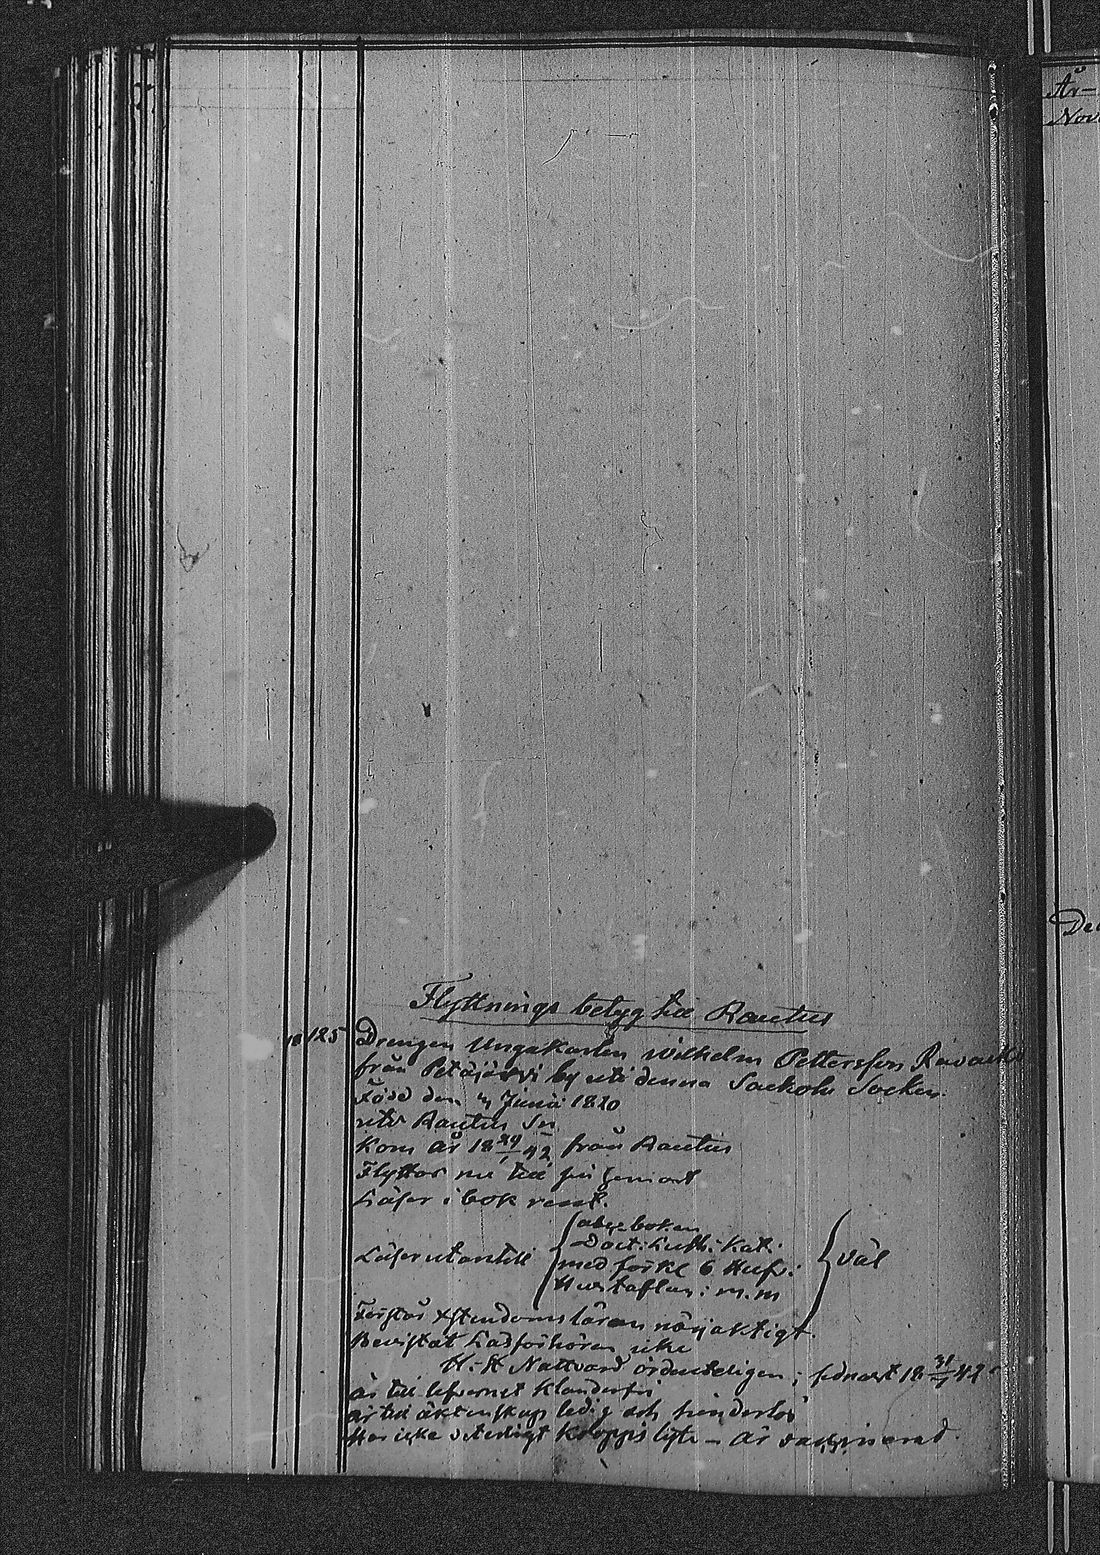 År-
Nov
De
Flyttnings betyg till Rautus
125 Drengen Ungakarlen Wilhelm Pettersson
från Petäjärvi by uti denna Sackola Socken.
Född den 4 Junii 1820
uti Rautus Sn
Kom år 18 29/1 42 från Rautus
Flyttar nu till sin hemort
Läser i bok rent.
abc boken
Doct: Luth: Kat:
Läser utantill med förkl 6 Huf: väl
Hustaflan: m.m
Förstår Xstendoms läran nöjaktigt.
Bevistat Läsförhören icke
H. H Nattvard ordenteligen, sednast 18 31/7 42
är till lefvernet Klanderfri
är till äktenskap ledig och hinderlös
Har icke veterligt Kropps lyte - är vaccinerad